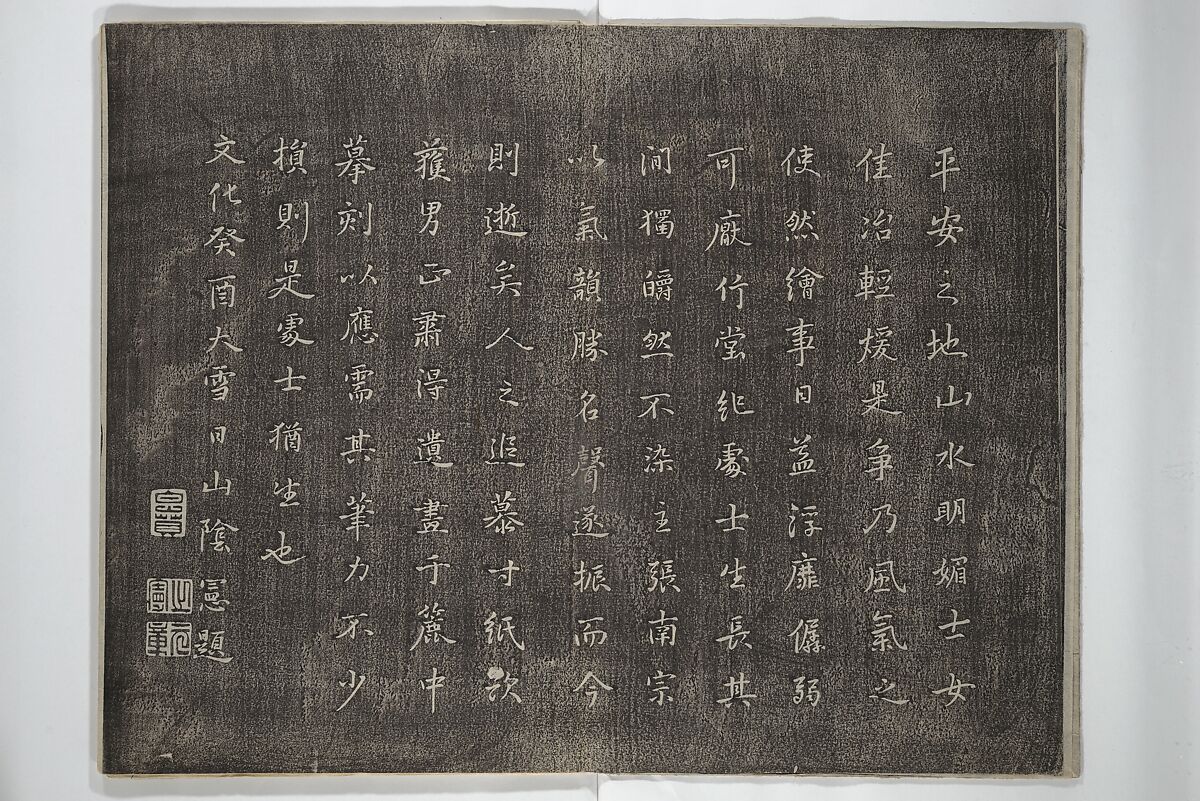 平安之地山水明媚士女
佳冶輕煖是爭乃風氣之
使然繪事日益浮靡孱弱
可厭竹堂紀處士生長其
間獨皭然不染主張南宗
以氣韻勝名聲遂振而今
則逝矣人之追慕寸紙
獲男正肅得遺畫于簏中
摹刻以應需其筆力不少
損則是處士猶生也
文化癸酉大雪日山陰憲題